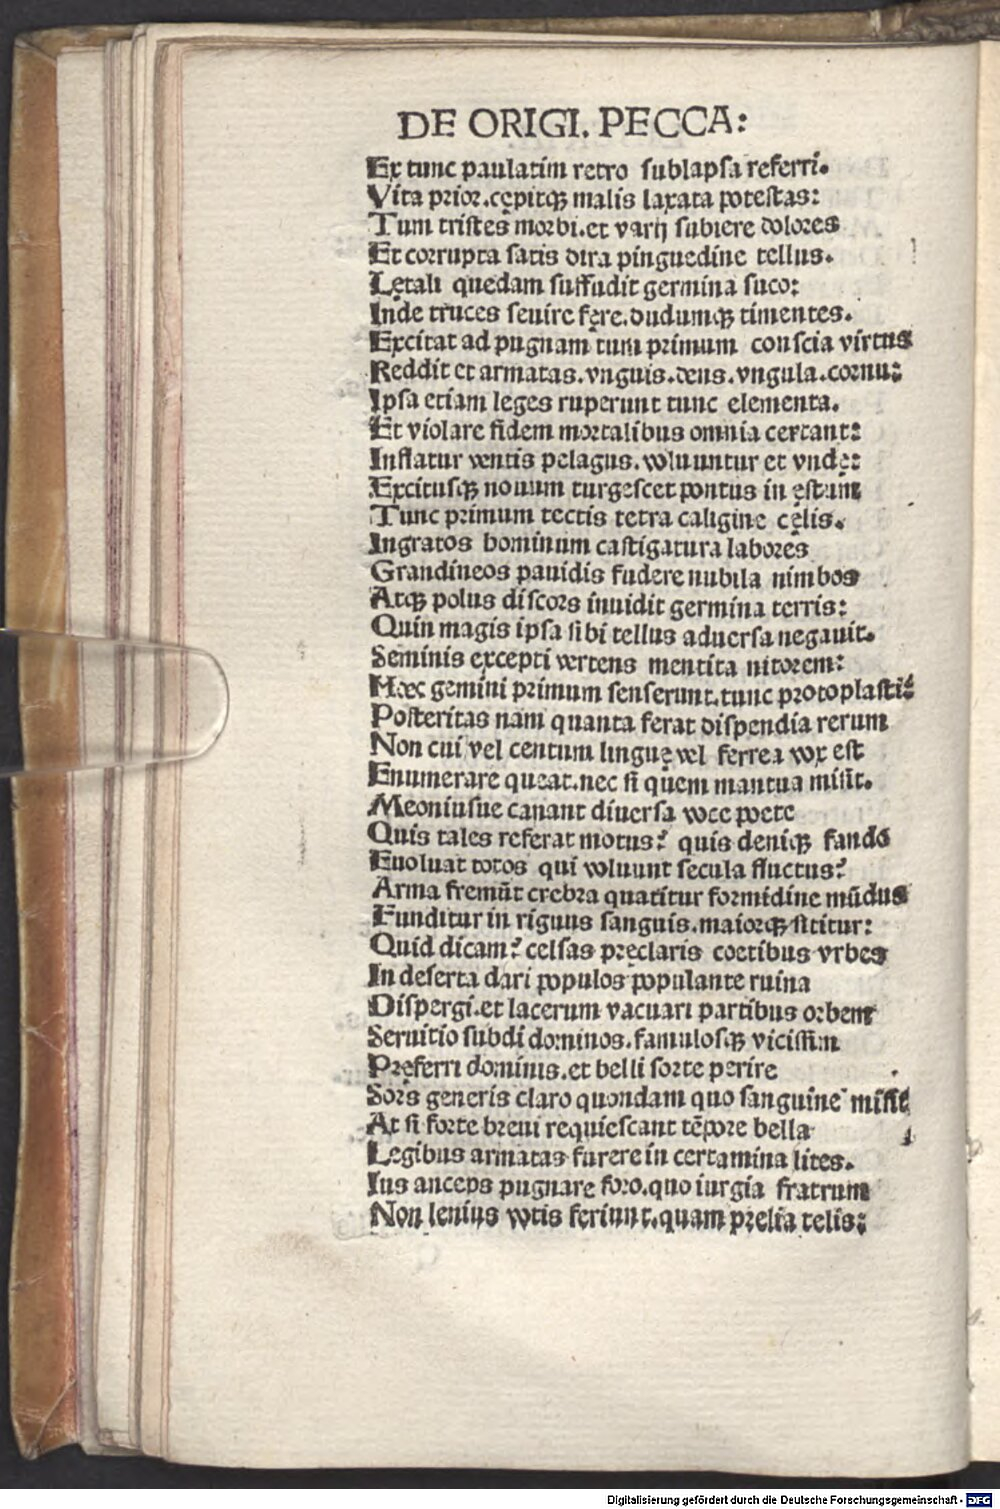 DE ORIGI. PECCA:
Ex tunc paulatim retro sublapsa referri.
Vita prior.cępitqꝫ malis laxata potestas:
Tum tristes morbi.et varij subiere dolores
Et corrupta satis dira pinguedine tellus.
Lętali quedam suffudit germina suco:
Inde truces seuire fęre.dudumqꝫ timentes.
Excitat ad pugnam tum primum conscia virtus
Reddit et armatas.vnguis.dens.vngula.cornu:
Ipsa etiam leges ruperunt tunc elementa.
Et violare fidem mortalibus omnia certant:
Inflatur ventis pelagus.voluuntur et vndę:
Excitusqꝫ nouum turgescet pontus in ęstum
Tunc primum tectis tetra caligine cęlis.
Ingratos hominum castigatura labores
Grandineos pauidis fudere nubila nimbos
Atqꝫ polus discors inuidit germina terris:
Quin magis ipsa sibi tellus aduersa negauit.
Seminis excepti vertens mentita nitorem:
Hoec gemini primum senserunt.tunc protoplasti:
Posteritas nam quanta ferat dispendia rerum
Non cui vel centum linguę vel ferrea vox est
Enumerare queat.nec si quem mantua misit.
Meoniusue canant diuersa voce poete
Quis tales referat motus? quis deniqꝫ fando
Euoluat totos qui voluunt secula fluctus?
Arma fremūt crebra quatitur formidine mūdus
Funditur in riguus sanguis.maiorqꝫ sititur:
Quid dicam? celsas pręclaris coetibus vrbes
In deserta dari populos populante ruina
Dispergi.et lacerum vacuari partibus orbem
Seruitio subdi dominos.famulosqꝫ vicissim
Pręferri dominis.et belli sorte perire
Sors generis claro quondam quo sanguine misit
At si forte breui requiescant tēpore bella
Legibus armatas furere in certamina lites.
Ius anceps pugnare foro.quo iurgia fratrum
Non lenius votis feriunt.quam prelia telis:
Digitalisierung gefördert durch die Deutsche Forschungsgemeinschaft - DFG